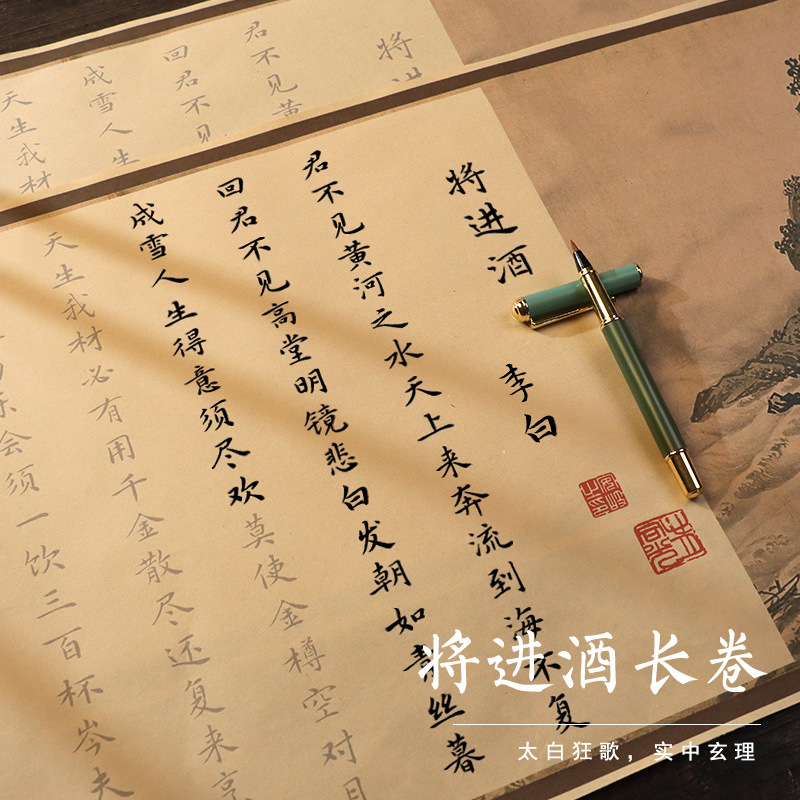 将
君不见黄
回君不见
成雪人生
天生我材
将进酒 李白
君不见黄河之水天上来奔流到海不复
回君不见高堂明镜悲白发朝如青丝暮
成雪人生得意须尽欢莫使金樽空对月
天生我材必有用千金散尽还复来
乐会须一饮三百杯岑夫
将进酒长卷
太白狂歌，实中玄理